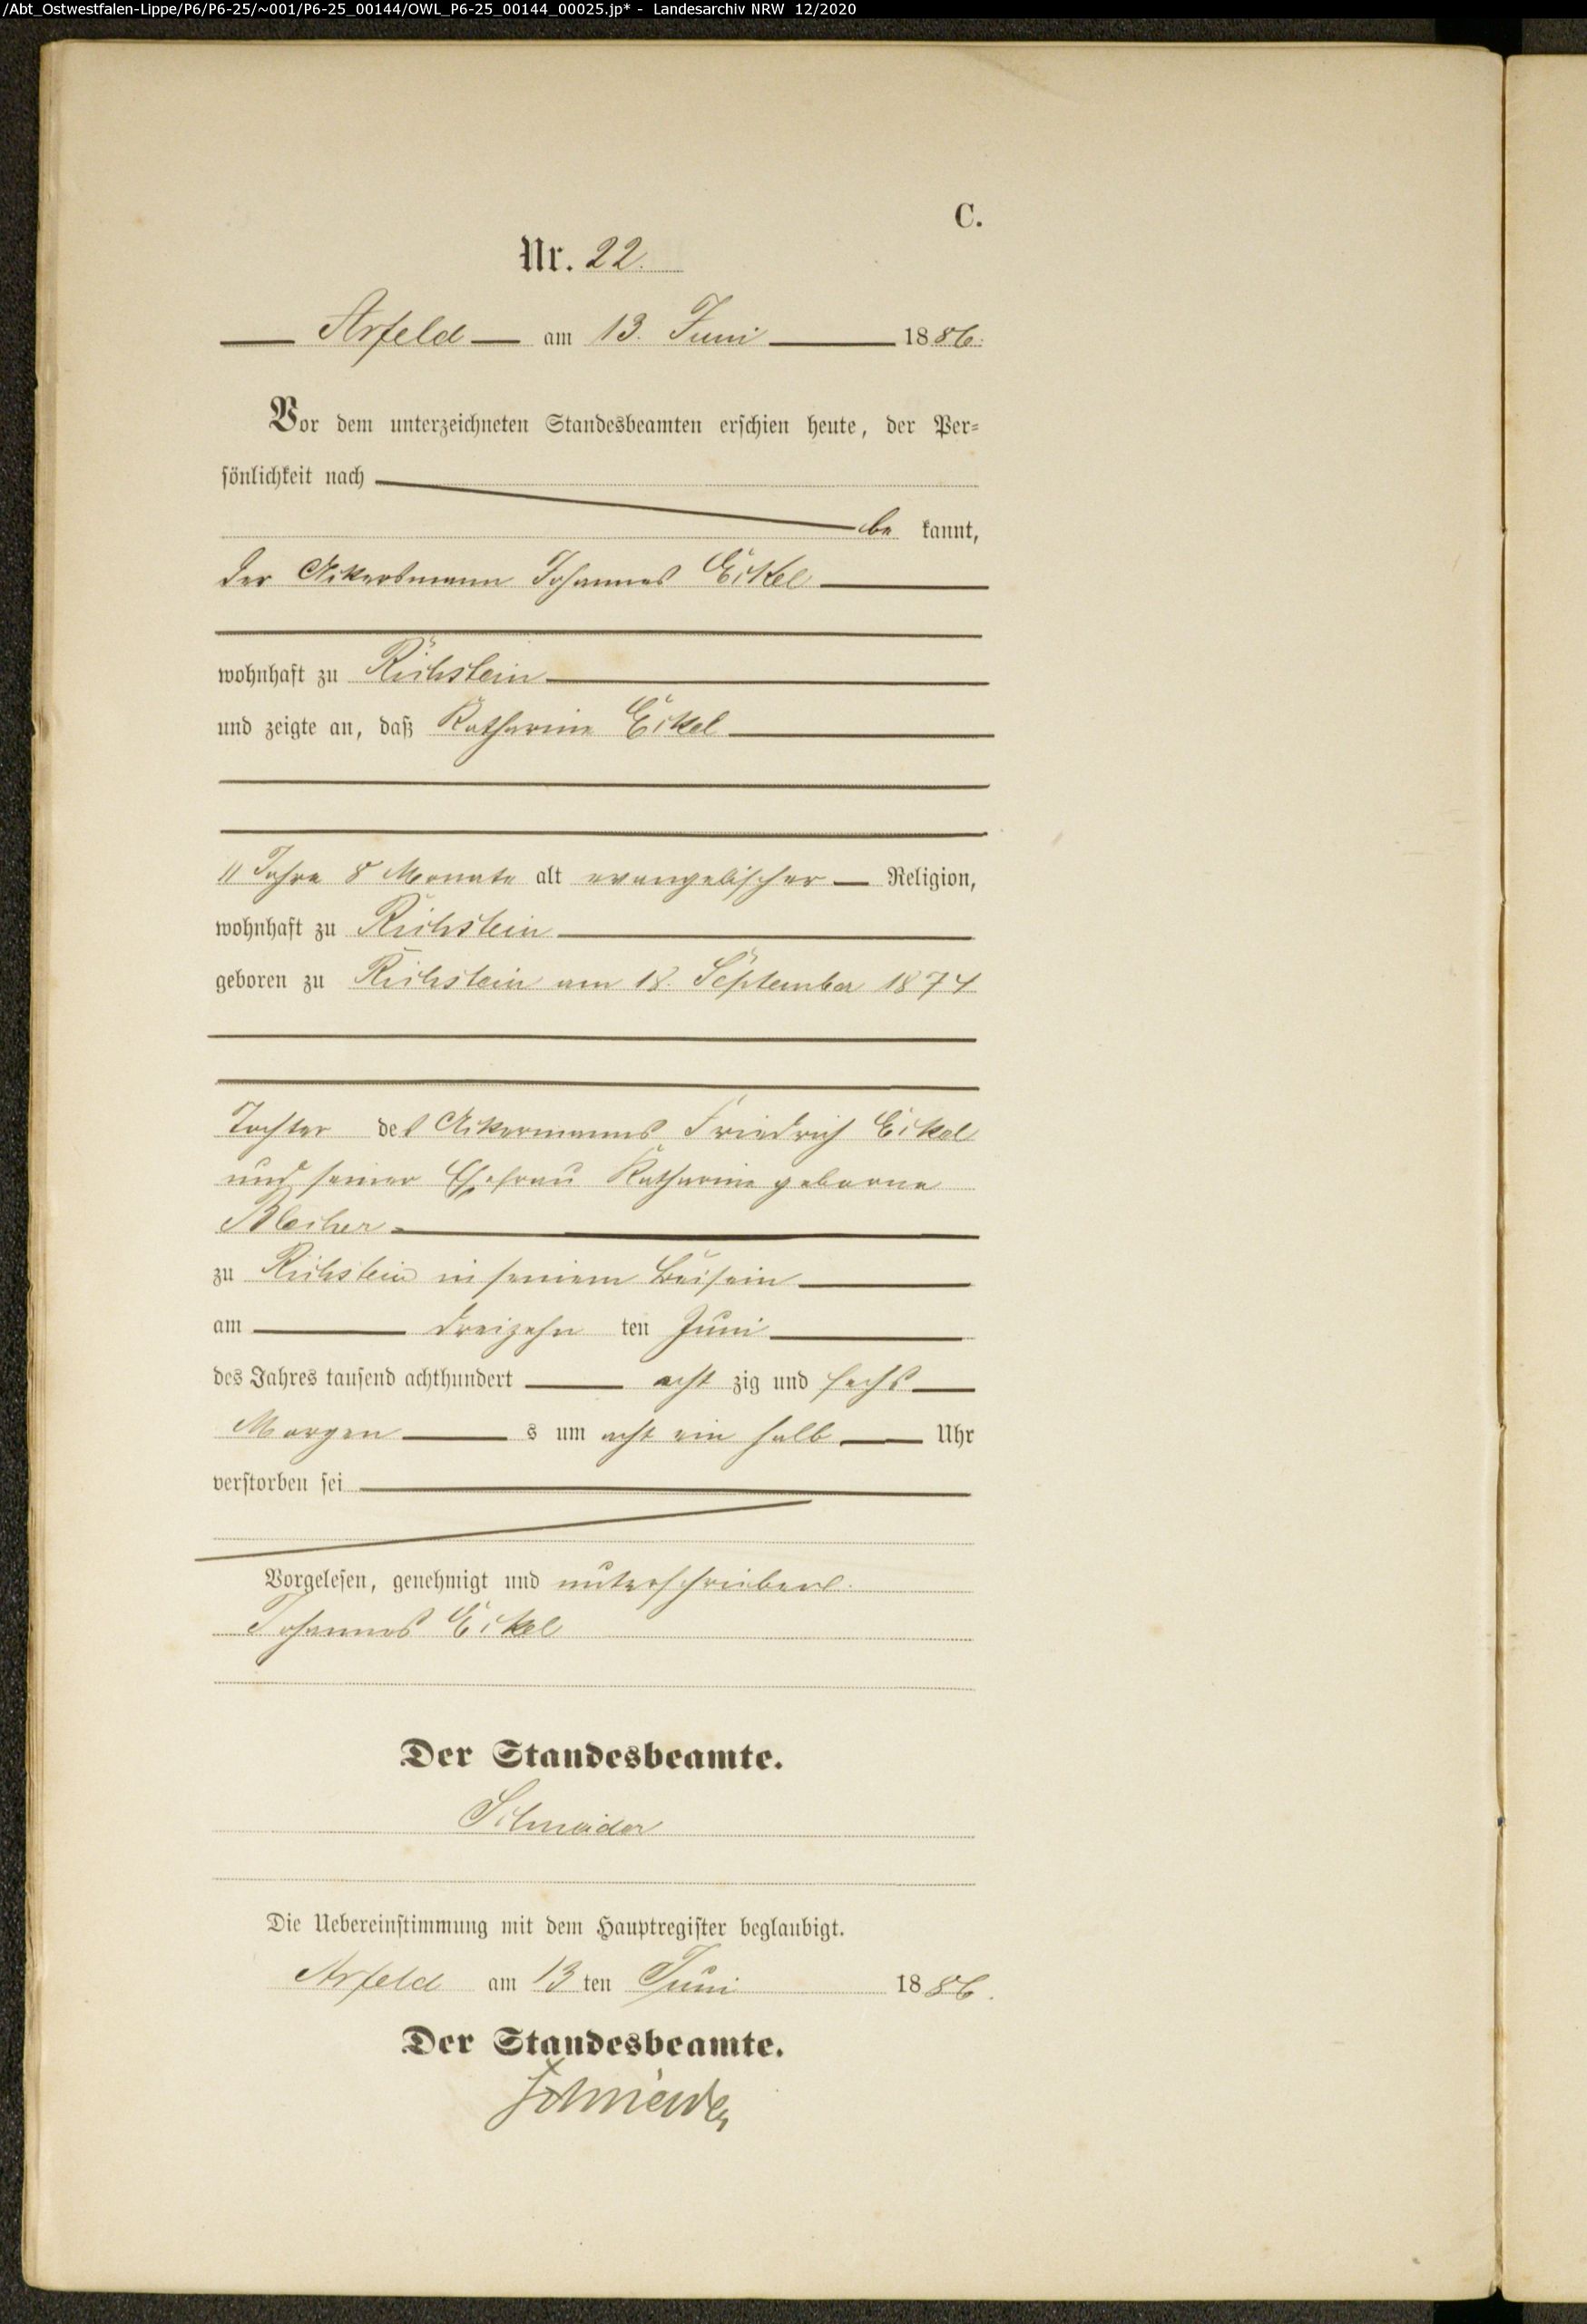 /Abt_Ostwestfalen-Lippe/P6/P6-25/~001/P6-25_00144/OWL_P6-25_00144_00025.jp* - Landesarchiv NRW 12/2020
C.
Nr. 22.
Arfeld am 13. Juni 1886.
Vor dem unterzeichneten Standesbeamten erschien heute, der Per-
sönlichkeit nach
be kannt,
der Ackersmann Johannes Eckel
wohnhaft zu Richstein
und zeigte an, daß Katharine Eckel
11 Jahre 8 Monate alt evangelischer Religion,
wohnhaft zu Richstein
geboren zu Richstein am 18. September 1874
Tochter des Ackermanns Friedrich Eckel
und seiner Ehefrau Katharine geborne
zu Richstein in seinem Beisein
am dreizehn ten Juni
des Jahres tausend achthundert acht zig und sechs
Morgen s um acht ein halb Uhr
verstorben sei
Vorgelesen, genehmigt und unterschrieben.
Johannes Eckel
Der Standesbeamte.
Schneider
Die Uebereinstimmung mit dem Hauptregister beglaubigt.
Arfeld am 13 ten Juni 1886.
Der Standesbeamte.
Schneider